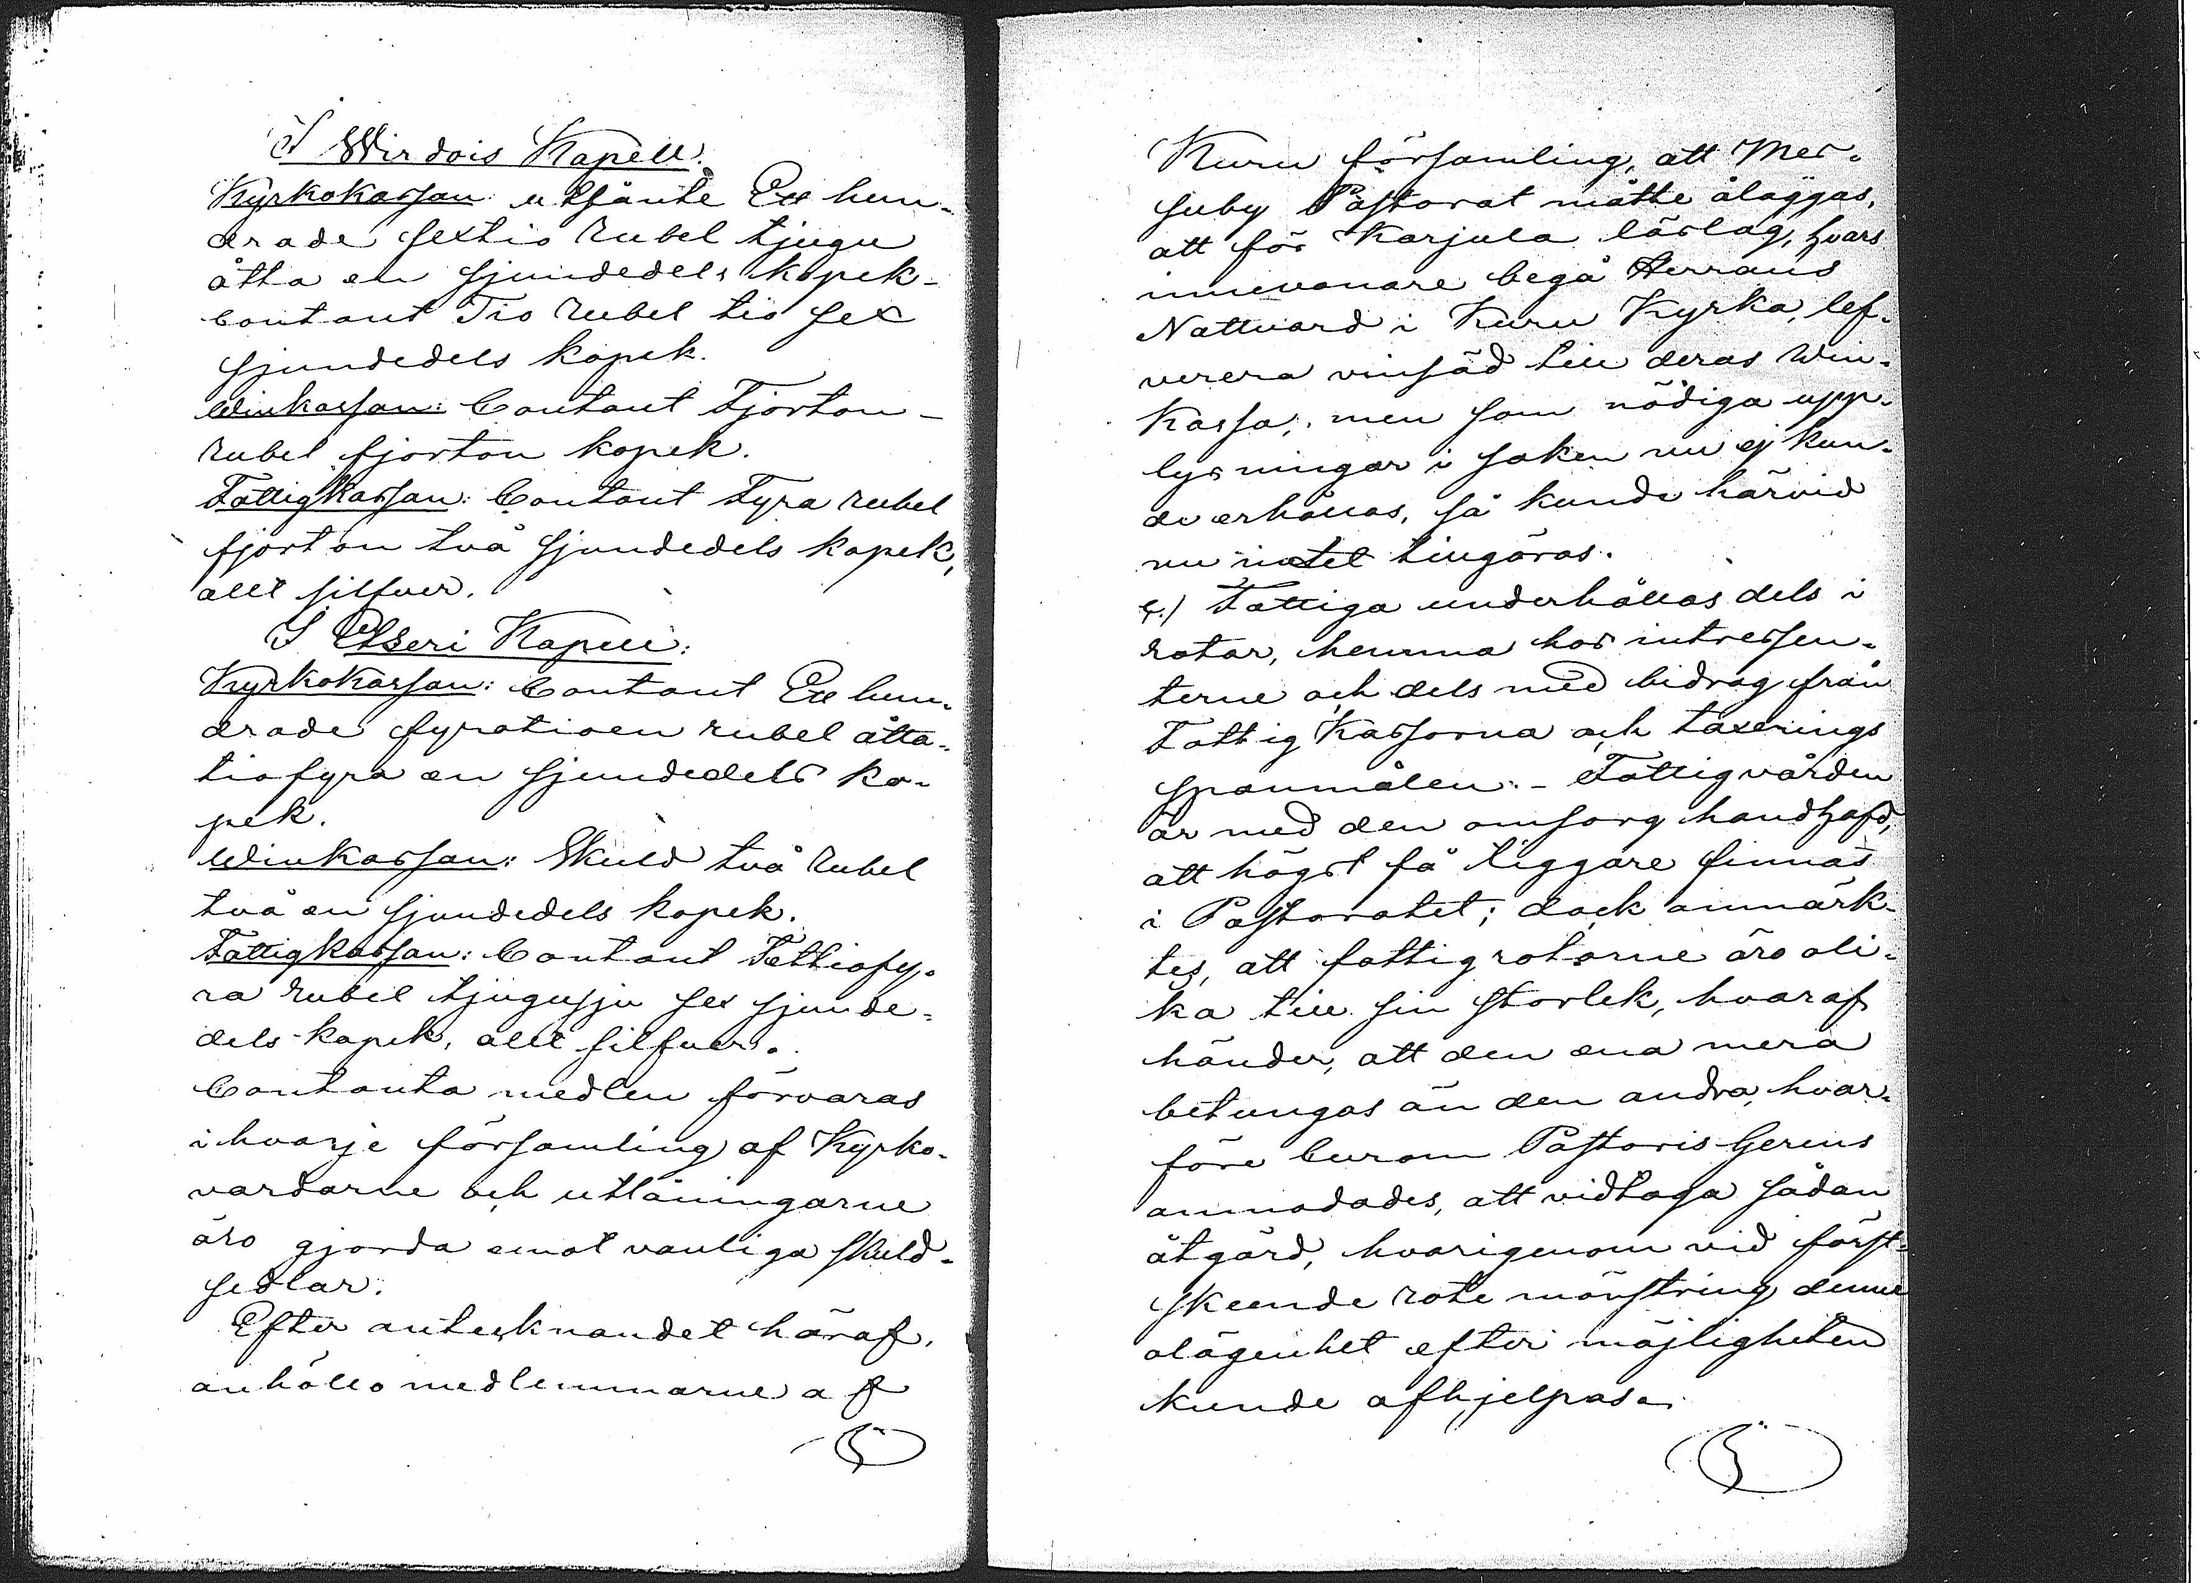 I Wirdois Kapell.
Kyrkokassan utlånte Ett hun-
drade sextio rubel tjugu
åtta en sjundedels kopek-
contant Tio rubel tio sex
sjundedels kopek.
Winkassan: Contant Fjorton-
rubel fjorton kopek.
Fattigkassan: Contant Fyra rubel
fjorton två sjundedels kopek,
allt silfver.
I Etseri Kapell:
Kyrkokassan: Contant Ett hun-
drade fyratioen rubel åtta-
tiofyra en sjundedels ko-
pek.
Winkassan: Skuld två rubel
två en sjundedels kopek.
Fattigkassan: Contant Tettiofy-
ra rubel tjugusju sex sjunde-
dels kopek, allt silfver.
Contanta medlen förvaras
i hvarje församling af Kyrko-
vardarne och utlåningarne
äro gjorda emot vanliga skuld-
sedlar.
Efter antecknandet häraf,
anhöllo medlemmarne af
Kuru församling, att Mes-
suby Pastorat måtte åläggas,
att för Karjula läslag, hvars
innevånare begå Herrans
Nattvard i Kuru Kyrka, lef-
verera vinsäd till deras Win-
Kassa; men som nödiga upp-
lysningar i saken nu ej kun-
de erhållas, så kunde härvid
nu intet tillgöras.
Fattiga underhållas dels i
rotar, hemma hos intressen-
terne och dels med bidrag från
Fattig Kassorna och taxerings
spanmålen. - Fattigvården
är med den omsorg handhafd,
att högst få tiggare finnas
i Pastoratet; dock anmärk-
tes, att fattigrotarne äro oli-
ka till sin storlek, hvaraf
händer, att den ena mera
betungas än den andra, hvar-
före Curam Pastoris Gerens
anmodades, att vidtaga sådan
åtgärd, hvarigenom vid först-
skeende rote mönstring denne
olägenhet efter möjligheten
kunde afhjelpas.